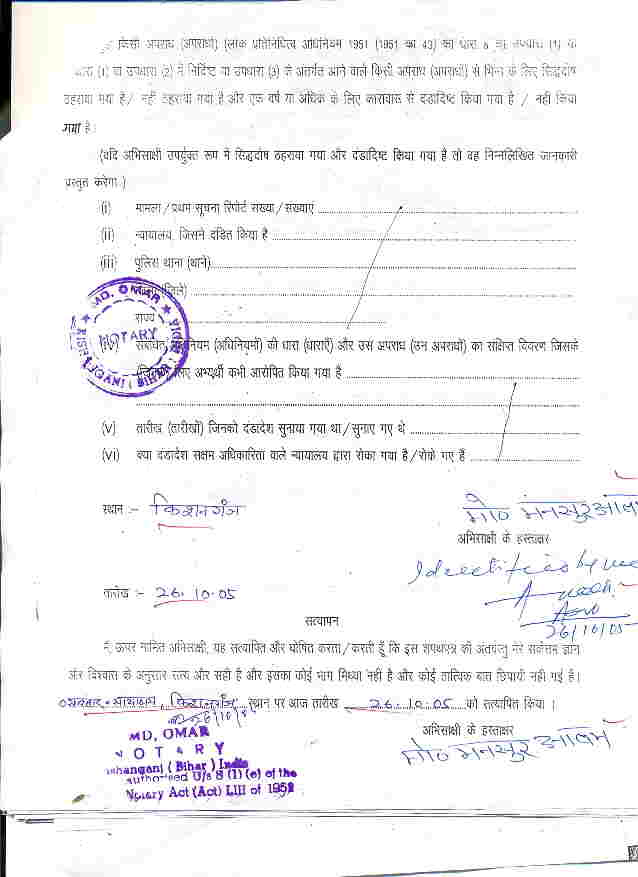 किसी अपराध (अपराधों) (लोक प्रतिनिधित्व अधिनियम 1951 (1951 का 43) की धारा 8 की उपधारा (1) या
धारा (1) या उपधारा (2) में निर्दिष्ट या उपधारा (3) के अंतर्गत आने वाले किसी अपराध (अपराधों) से भिन्न के लिए सिद्धदोष
ठहराया गया है / नहीं ठहराया गया है और एक वर्ष या अधिक के लिए कारावास से दंडादिष्ट किया गया है / नहीं किया
गया है
(यदि अभिसाक्षी उपर्युक्त रूप में सिद्धदोष ठहराया गया और दंडादिष्ट किया गया है तो वह निम्नलिखित जानकारी
प्रस्तुत करेगा )
(i) मामला / प्रथम सूचना रिपोर्ट संख्या / संख्याएं
(ii) न्यायालय, जिसने दंडित किया है
(iii) पुलिस थाना (थाने)
(जिले)
राज्य
MD. OMAR
NOTARY
(अधिनियमों) की धारा (धाराएँ) और उस अपराध (उन अपराधों) का संक्षिप्त विवरण जिसके
लिए अभ्यर्थी कभी आरोपित किया गया है
(v) तारीख (तारीखों) जिनको दंडादेश सुनाया गया था / सुनाए गए थे
(vi) क्या दंडादेश सक्षम अधिकारिता वाले न्यायालय द्वारा रोका गया है / रोके गए हैं
स्थान :- किशनगंज
मो० मनसुर आलम
अभिसाक्षी के हस्ताक्षर
Identified by me
26/10/05
तारीख :- 26.10.05
सत्यापन
मैं, ऊपर नामित अभिसाक्षी, यह सत्यापित और घोषित करता / करती हूँ कि इस शपथपत्र की अंतर्वस्तु मेरे सर्वोत्तम ज्ञान
और विश्वास के अनुसार सत्य और सही है और इसका कोई भाग मिथ्या नहीं है और कोई तात्विक बात छिपायी नहीं गई है।
किशनगंज स्थान पर आज तारीख 26.10.05 को सत्यापित किया ।
अभिसाक्षी के हस्ताक्षर
मो० मनसुर आलम
MD. OMAR
NOTARY
( Bihar ) India
authorised U/s 8 (1) (e) of the
Notary Act (Act) LIII of 1952